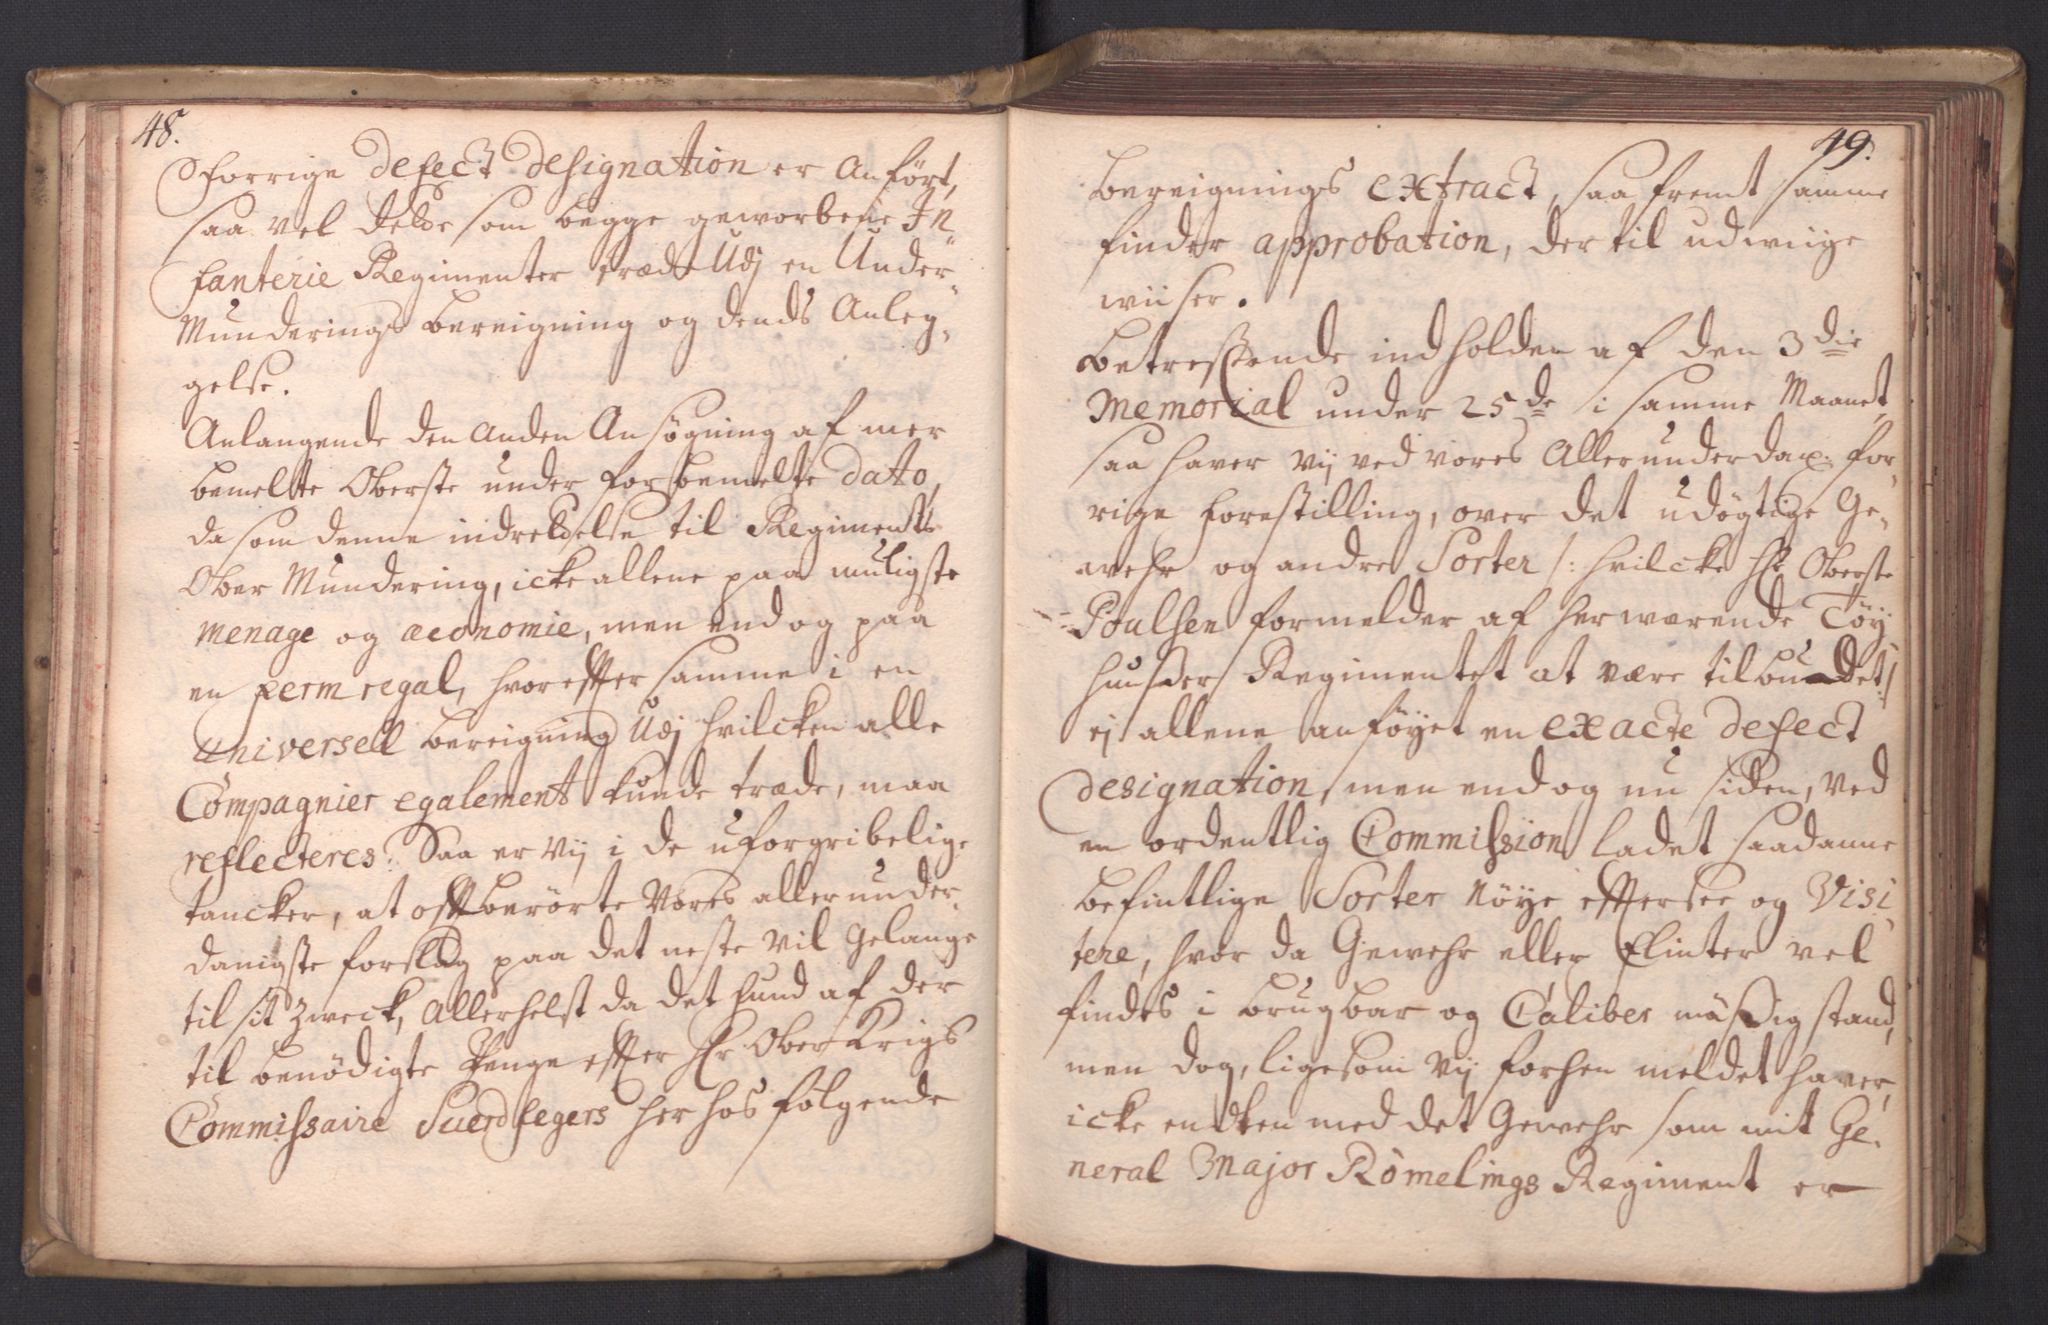 48.
forrige defect designation er Anført,
saa vel dette som begge geworbene In
fanterie Regimenter træde Udj en Under
Munderings bereigning og dends Anleg-
gelse.
Anlangende den Anden Ansøgning af mer
bemelte Oberste under forbemelte dato,
da som denne indrettelse til Regimentets
Ober Mundering, icke allene paa muligste
menage og æconomie, men end og paa
en permregal, hvorefter samme i en
universell bereigning Udj hvilcken alle
Compagnier egalement kunde træde, maa
reflecteres: Saa er Vij i de uforgribelige
tancker, at oftberørte Vores allerunder-
danigste forslag paa det neste vil Gelange
til sit Zweck, Allerhelst da det hund af der
til benödigte Penge efter Hr Ober Krigs
Commissaire Suerdfegers her hos følgende
49.
bereignings extract, saa fremt samme
finder approbation, der til udwiige
wiiser.
Betreffende indholden af den 3die
Memorial under 25de i samme Maanet,
saa haver Vij ved vores Allerunderdan. for-
rige forestilling, over det udøgtige Ge-
wehr og andre Sorter /: hvilcke Hr Oberste
Poulsen formelder af herwærende Töy
huuser Regimentet at være tilbundet :/
ej allene anföyet en exacte defect
designation, men end og nu siden, ved
en ordentlig Commission ladet saadanne
befintlige Sorter nöye eftersee og Visi
tere, hvor da Gewehr eller Flinter vel
findes i brugbar og Caliber mässig stand,
men dog, ligesom Vij forhen meldet haver,
icke endten med det Gewehr som mit Ge-
neral Major Römelings Regiment er